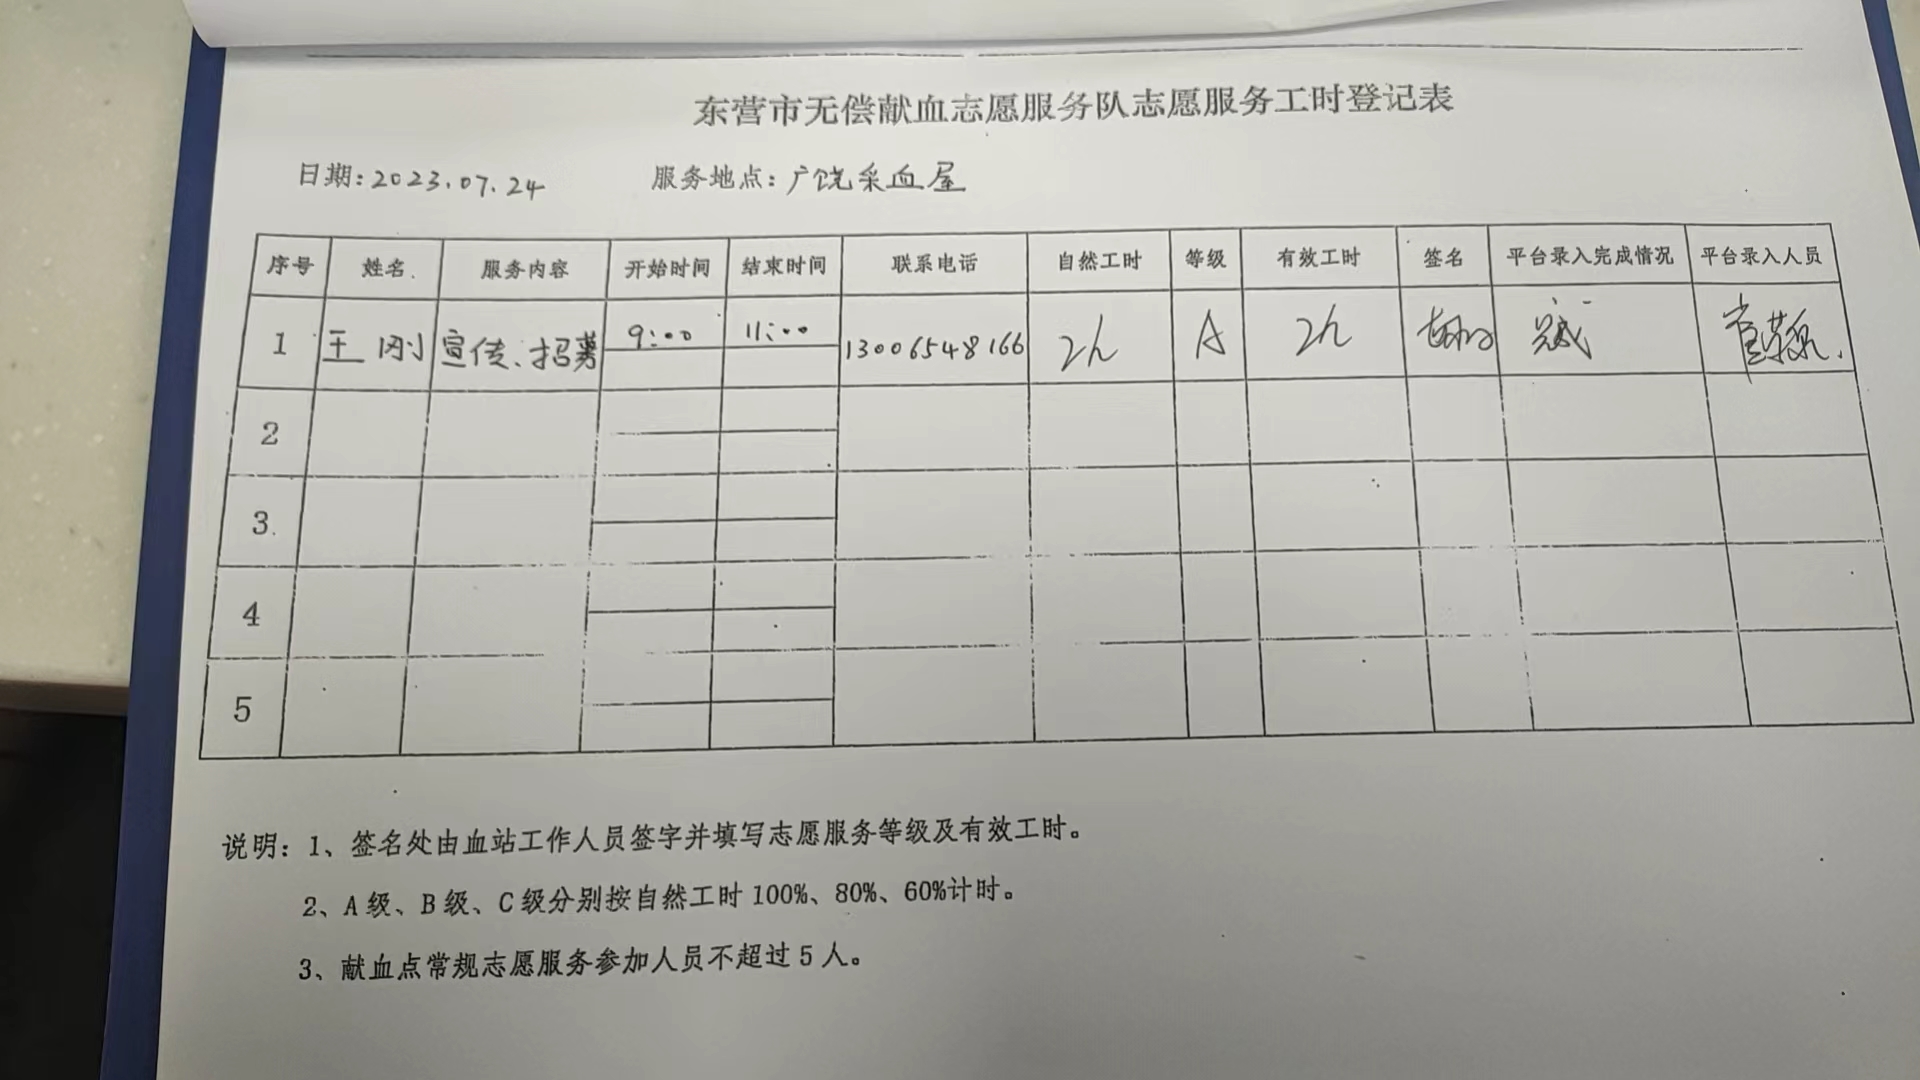 东营市无偿献血志愿服务队志愿服务工时登记表
日期:2023.07.24 服务地点:广饶采血屋
序号 姓名 服务内容 开始时间 结束时间 联系电话 自然工时 等级 有效工时 签名 平台录入完成情况 平台录入人员
1 王刚 宣传、招募 9:00 11:00 13006548166 2h A 2h 完成
2
3
4
5
说明:1、签名处由血站工作人员签字并填写志愿服务等级及有效工时。
2、A级、B级、C级分别按自然工时100%、80%、60%计时。
3、献血点常规志愿服务参加人员不超过5人。